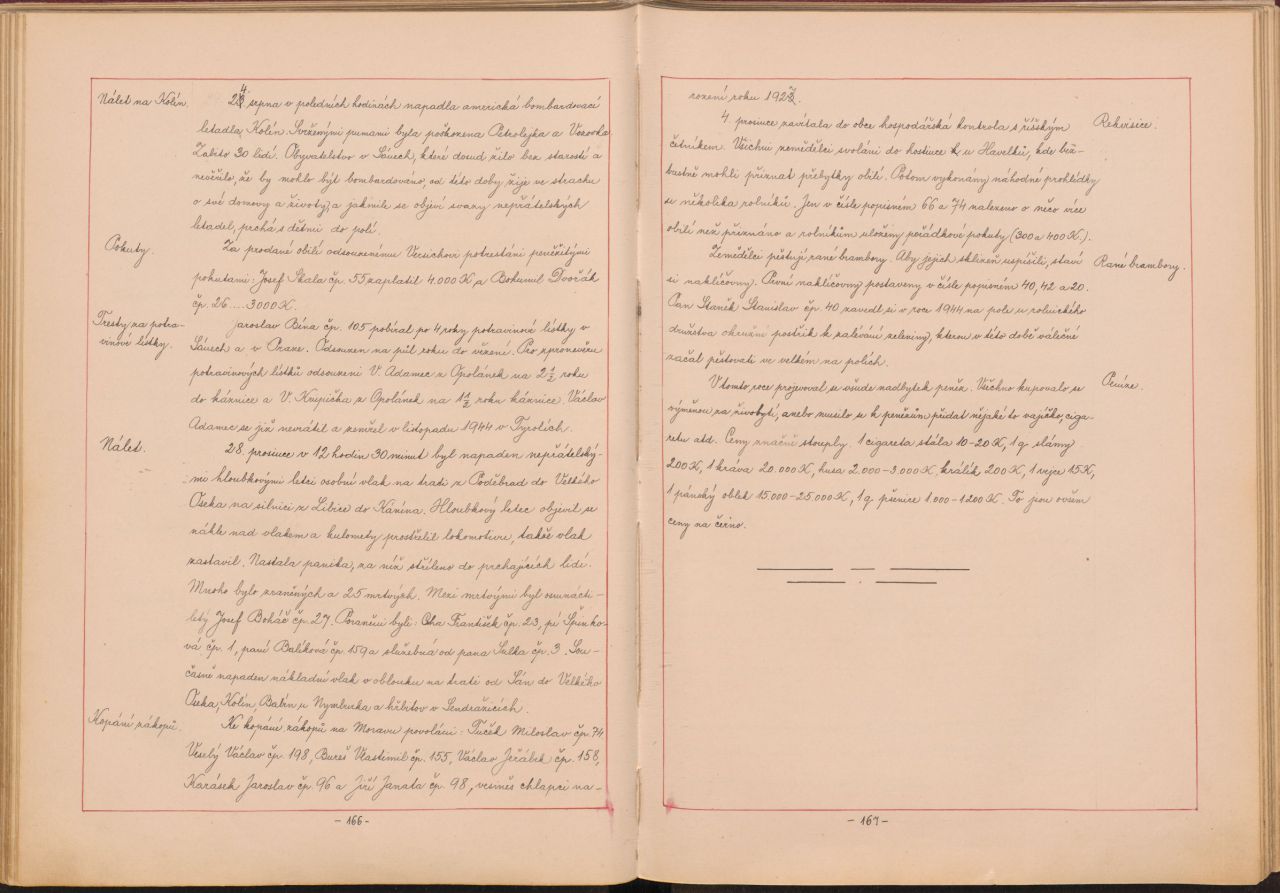 Nálet na Kolín.
24. srpna v poledních hodinách napadla americká bombardovací
letadla, Kolín. Svrženými pumami byla poškozena Petrolejka a Vozovka.
Zabito 30 lidí. Obyvatelstvo v Sánech, které dosud žilo bez starostí a
nevěřilo, že by mohlo být bombardováno, od této doby žije ve strachu
o své domovy a životy, a jakmile se objeví svazy nepřátelských
letadel, prchá s dětmi do polí.
Pokuty.
Za prodané obilí odsouzenému Versichovi potrestáni peněžitými
pokutami: Josef Skala čp. 55 zaplatil 4.000 K a Bohumil Dvořák
čp. 26 .... 3000 K.
Tresty za potra-
vinové lístky.
Jaroslav Bína čp. 105 pobíral po 4 roky potravinové lístky v
Sánech a v Praze. Odsouzen na půl roku do vězení. Pro zpronevěru
potravinových lístků odsouzeni V. Adamec z Opolánek na 2 1/2 roku
do káznice a V. Krupička z Opolánek na 1 1/2 roku káznice. Václav
Adamec se již nevrátil a zemřel v listopadu 1944 v Tyrolích.
Nálet.
28. prosince v 12 hodin 30 minut byl napaden nepřátelský-
mi hloubkovými letci osobní vlak na trati z Poděbrad do Velkého
Oseka na silnici z Libice do Kanína. Hloubkový letec objevil se
náhle nad vlakem a kulomety prostřelil lokomotivu, takže vlak
zastavil. Nastala panika, za níž stříleno do prchajících lidí.
Mnoho bylo zraněných a 25 mrtvých. Mezi mrtvými byl osmnácti-
letý Josef Boháč čp. 27. Poraněni byli: Cha František čp. 23, pí Špinko-
vá čp. 1, paní Balíková čp. 159 a služebná od pana Sulka čp. 3. Sou-
časně napaden nákladní vlak v oblouku na trati od Sán do Velkého
Oseka, Kolín, Babín u Nymburka a hřbitov v Sendražicích.
Kopání zákopů.
Ke kopání zákopů na Moravu povoláni: Tuček Miloslav čp. 74
Veselý Václav čp. 198, Bureš Vlastimil čp. 155, Václav Jeřábek čp. 158,
Karásek Jaroslav čp. 96 a Jiří Janata čp. 98, vesměs chlapci na-
- 166 -
rození roku 1927.
Rekvisice.
4. prosince zavítala do obce hospodářská kontrola s říšským
četníkem. Všichni zemědělci svoláni do hostince k u Havelků, kde bez-
bastně mohli přiznat přebytky obilí. Potom vykonány náhodné prohlídky
u několika rolníků. Jen v čísle popisném 66 a 74 nalezeno o něco více
obilí než přiznáno a rolníkům uloženy pořádkové pokuty (300 a 400 K.).
Rané brambory.
Zemědělci pěstují rané brambory. Aby jejich sklizeň uspíšili, staví
si naklíčovny. První naklíčovny postaveny v čísle popisném 40, 42 a 20.
Pan Staněk Stanislav čp. 40 zavedl si v roce 1944 na pole u rolnického
družstva okružní postřik k zalévání zeleniny, kterou v této době válečné
začal pěstovati ve velkém na polích.
Peníze.
V tomto roce projevoval se všude nadbytek peněz. Všechno kupovalo se
výměnou za živobytí, anebo musilo se k penězům přidat nějaké to vajíčko, ciga-
retu atd. Ceny značně stouply. 1 cigareta stála 10-20 K, 1 q slámy
200 K, 1 kráva 20.000 K, husa 2.000-3.000 K, králík 200 K, 1 vejce 15 K,
1 pánský oblek 15.000-25.000 K, 1 q pšenice 1.000-1200 K. To jsou ovšem
ceny na černo.
- 167 -